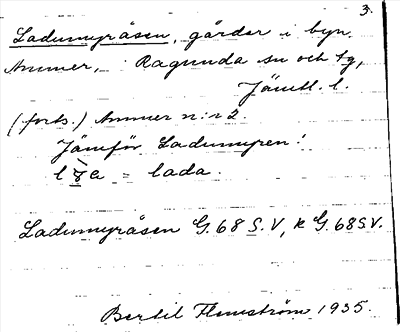 3.
Ladumyråsen, gårdar i byn
Ammer, Ragunda sn och tg,
Jämtl. l.
(forts.) Ammer n:r 2.
Jämför Ladumyren!
= lada.
Ladumyråsen G. 68 S.V, k G. 68 S.V.
Bertil Flemström 1935.